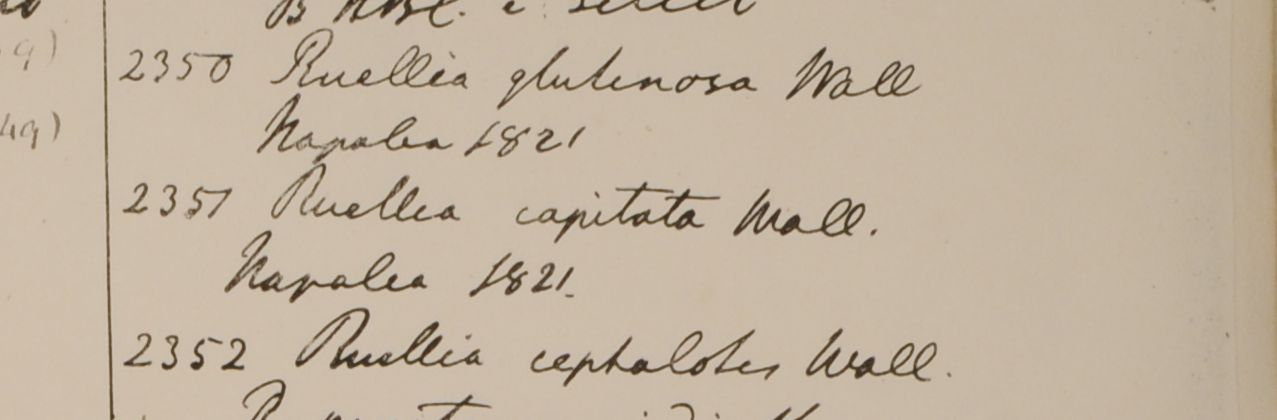 9)
2350 Ruellia glutinosa Wall
Napalea 1821
49)
2351 Ruellia capitata Wall.
Napalea 1821.
2352 Ruellia cephalotes Wall.